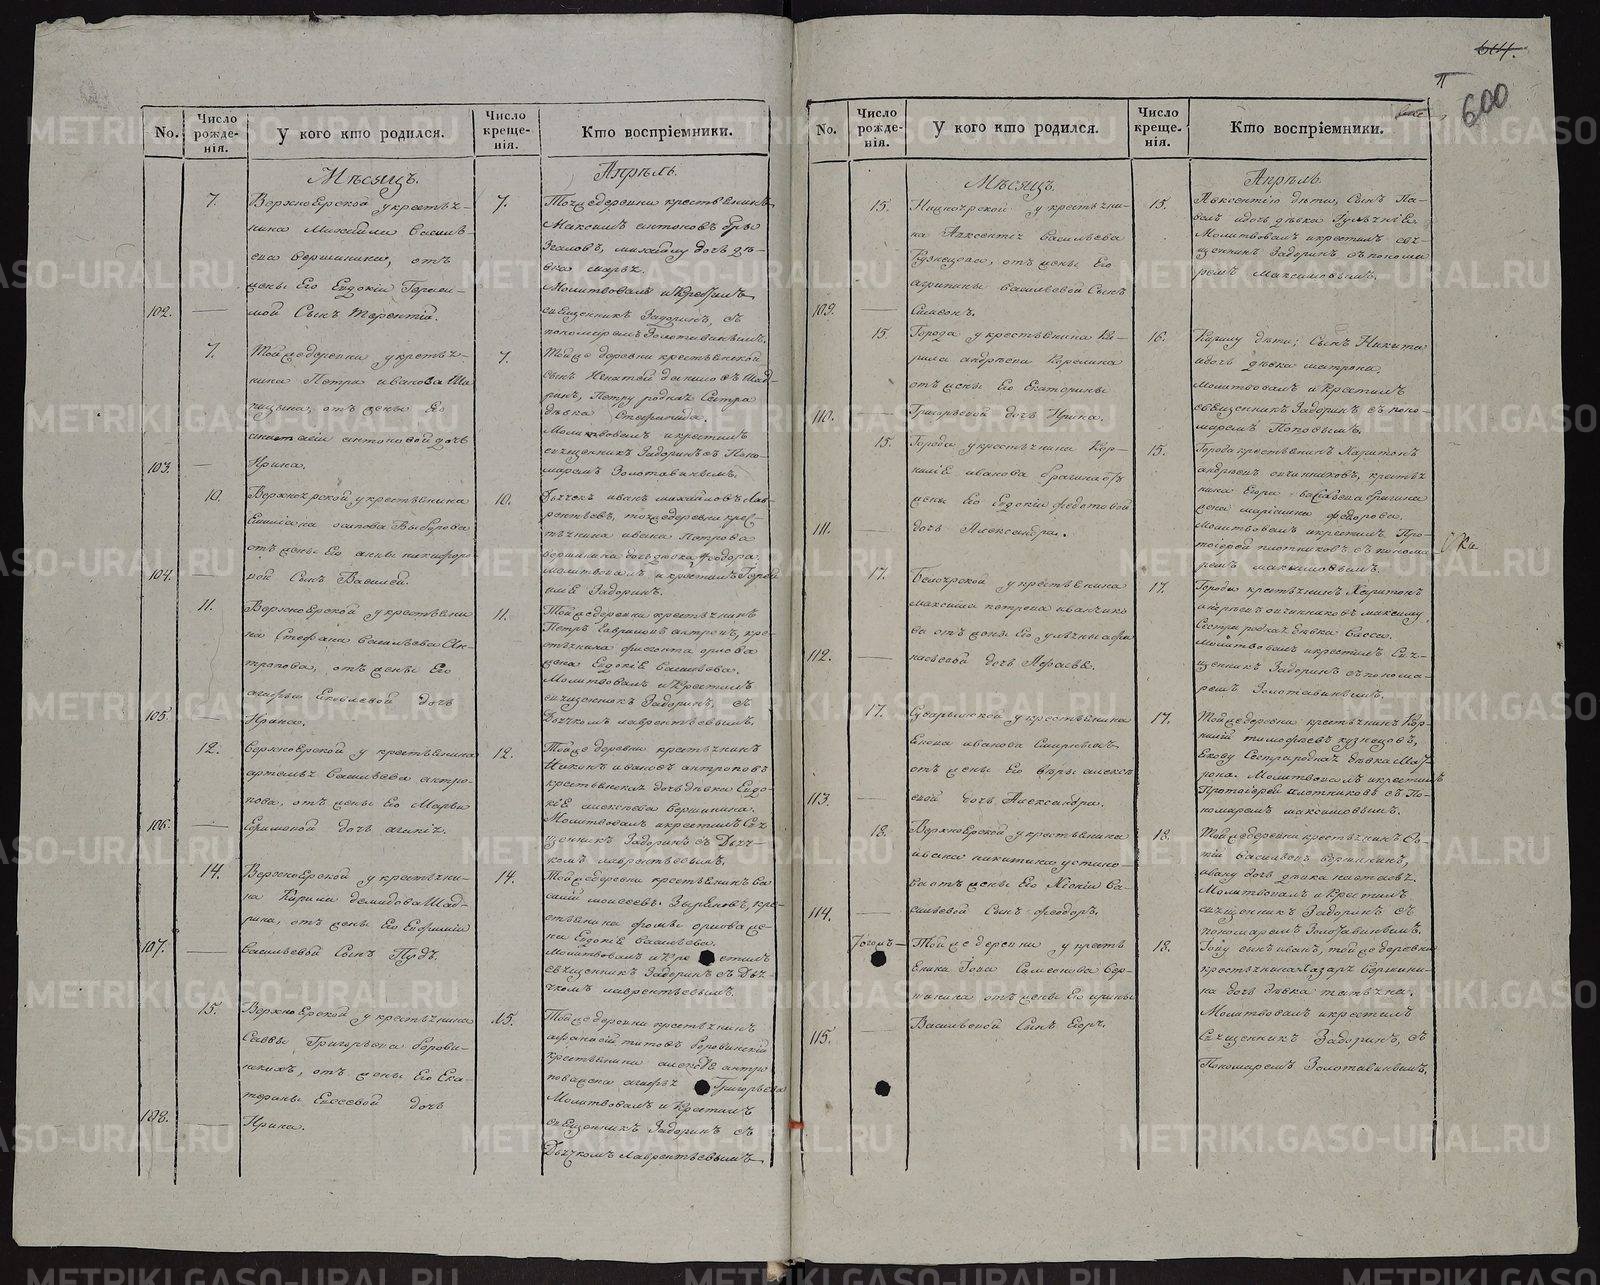 614.
600
No.
Число рожде-нія.
У кого кто родился.
Число креще-нія.
Кто воспріемники.
Мѣсяцъ.
Апрѣль.
7.
Верхноерской у крестья-
нина Михайла Василь
ева вершинина, отъ
жены Его Евдокіи Гераси-
102.
мой Сынъ Терентій.
7.
Тойже деревни крестьянинъ
Максимъ антоновъ
михайлу дочь дѣ-
вка марья.
Молитвовалъ и Крестилъ
священникъ Задоринъ, съ
пономаремъ Золотавинымъ.
7.
Тойже деревни у крестья-
нина Петра иванова
отъ жены Его
антоновой дочь
103.
Ирина.
7.
Тойже деревни крестьянской
сынъ Игнатей данилов Шад-
ринъ, Петру родная Сестра
дѣвка Стефанида.
Молитвовалъ и крестилъ
священникъ Задоринъ съ Поно-
маремъ Золотавинымъ.
10.
Верхноярской у крестьянина
Емиліана осипова Выборова
отъ жены Его анны никифоро-
104.
вой Сынъ Василей.
10.
Дьячекъ иванъ михайловъ Лав-
рентьевъ, тоже деревни крес-
тьянина ивана Петрова
вершинина дочь дѣвка Феодора.
молитвовалъ и крестилъ
Задоринъ.
11.
Верхноерской у крестьяни
на Стефана Васильева Ан-
тропова, отъ жены Его
агафьи Яковлевой дочь
105.
Ирина.
11.
Тойже деревни крестьянинъ
Петръ Гавриловъ антроповъ, кре-
стьянина орлова
жена Евдокіе Васильева.
Молитвовалъ и Крестилъ
священникъ Задоринъ, съ
Дьячкомъ лаврентьевымъ.
12.
верхноерской у крестьянина
артемья Васильева антро-
пова, отъ жены Его Марьи
106.
Ефимовой дочь
12.
Тойже деревни крестьянинъ
ивановъ антроповъ
крестьянская дочь дѣвка Евдо-
кіе алексѣева вершинина.
Молитвовалъ и крестилъ Свя-
щенникъ Задоринъ съ Дьяч-
комъ лаврентьевымъ.
14.
Верхноерской у крестьяни-
на Кирила демидова Шад-
рина, отъ жены Его Евфиміи
107.
Васильевой Сынъ Пудъ.
14.
Тойже деревни крестьянинъ Ва
силій моисеевъ. Зыряновъ, кре-
стьянина фомы орлова же-
на Евдокіе Васильева.
Молитвовалъ и Кре стилъ
священникъ Задоринъ съ Дья-
чкомъ лаврентьевымъ.
15.
Верхноерской у крестьянина
Саввы Григорьева
отъ жены Его Ека-
терины дочь
108.
Ирина.
15.
Тойже деревни крестьянинъ
афанасій титовъ
крестьянина антро
пова жена Григорьева
Молитвовалъ и Крестилъ
священникъ Задоринъ съ
Дьячкомъ лаврентьевымъ.
No.
Число рожде-нія.
У кого кто родился.
Число креще-нія.
Кто воспріемники.
Мѣсяцъ.
Апрѣль.
15.
у крестьяни-
на Авксентія васильева
Кузнецова, отъ жены Его
агрипины васильевой Сынъ
109.
Симеонъ.
15.
Авксентію дѣти, Сынъ Па-
велъ и дочь дѣвка
Молитвовалъ и крестилъ свя-
щенникъ Задоринъ съ понома
ремъ Максимовымъ.
15.
Города у крестьянина Ки-
рила андрѣева Корелина
отъ жены Его Екатерины
110.
Григорьевой дочь Ирина.
16.
Кирилу дѣти; Сынъ Никита
и дочь дѣвка матрона.
молитвовалъ и Крестилъ
священникъ Задоринъ съ поно-
маремъ Поповымъ.
15.
Города у крестьянина Кор-
ниліе иванова брагина отъ
жены Его Евдокіи федотовой
111.
дочь Александра.
15.
Города крестьянинъ Харитонъ
андрѣевъ овчинниковъ, крестья
нина Егора васильева брагина
жена маріамна федорова.
Молитвовалъ и крестилъ Про-
тоіерей плотниковъ съ понома
ремъ максимовымъ.
17.
Белоярской у крестьянина
максима петрова иванчико
ва отъ жены Его ульяны афа
112.
насьевой дочь Пораска.
17.
Города крестьянинъ Харитонъ
андрѣевъ овчинниковъ максиму
Сестра родная дѣвка васса.
молитвовалъ и крестилъ Свя-
щенникъ Задоринъ съ понома-
ремъ Золотавинымъ.
17.
у крестьянина
Екова иванова Смирныхъ
отъ жены Его вѣры алексѣ
113.
евой дочь Александра.
17.
Тойже деревни крестьянинъ Кор-
нилій тимофѣевъ кузнецовъ,
Екову Сестра родная дѣвка Мат-
рона. Молитвовалъ и крестилъ
Протоіерей плотниковъ съ По-
номаремъ максимовымъ.
18.
Верхноерской у крестьянина
ивана никитина устино-
ва отъ жены Его Ва-
114.
сильевой Сынъ Феодоръ.
18.
Тойже деревни крестьянинъ
васильевъ вершининъ,
ивану дочь дѣвка настасья.
Молитвовалъ и Крестилъ
священникъ Задоринъ съ
пономаремъ Золотавинымъ.
Тогожъ
Тойже деревни у кресть
Еника Іова Симеонова Вер-
шинина отъ жены Его ирины
115.
Васильевой Сынъ Егоръ.
18.
Іову сынъ иванъ, тойже деревни
крестьянина Лазаря Вершини-
на дочь дѣвка татьяна.
Молитвовалъ и крестилъ
Священникъ Задоринъ, съ
Пономаремъ Золотавинымъ.
METRIKI.GASO-URAL.RU